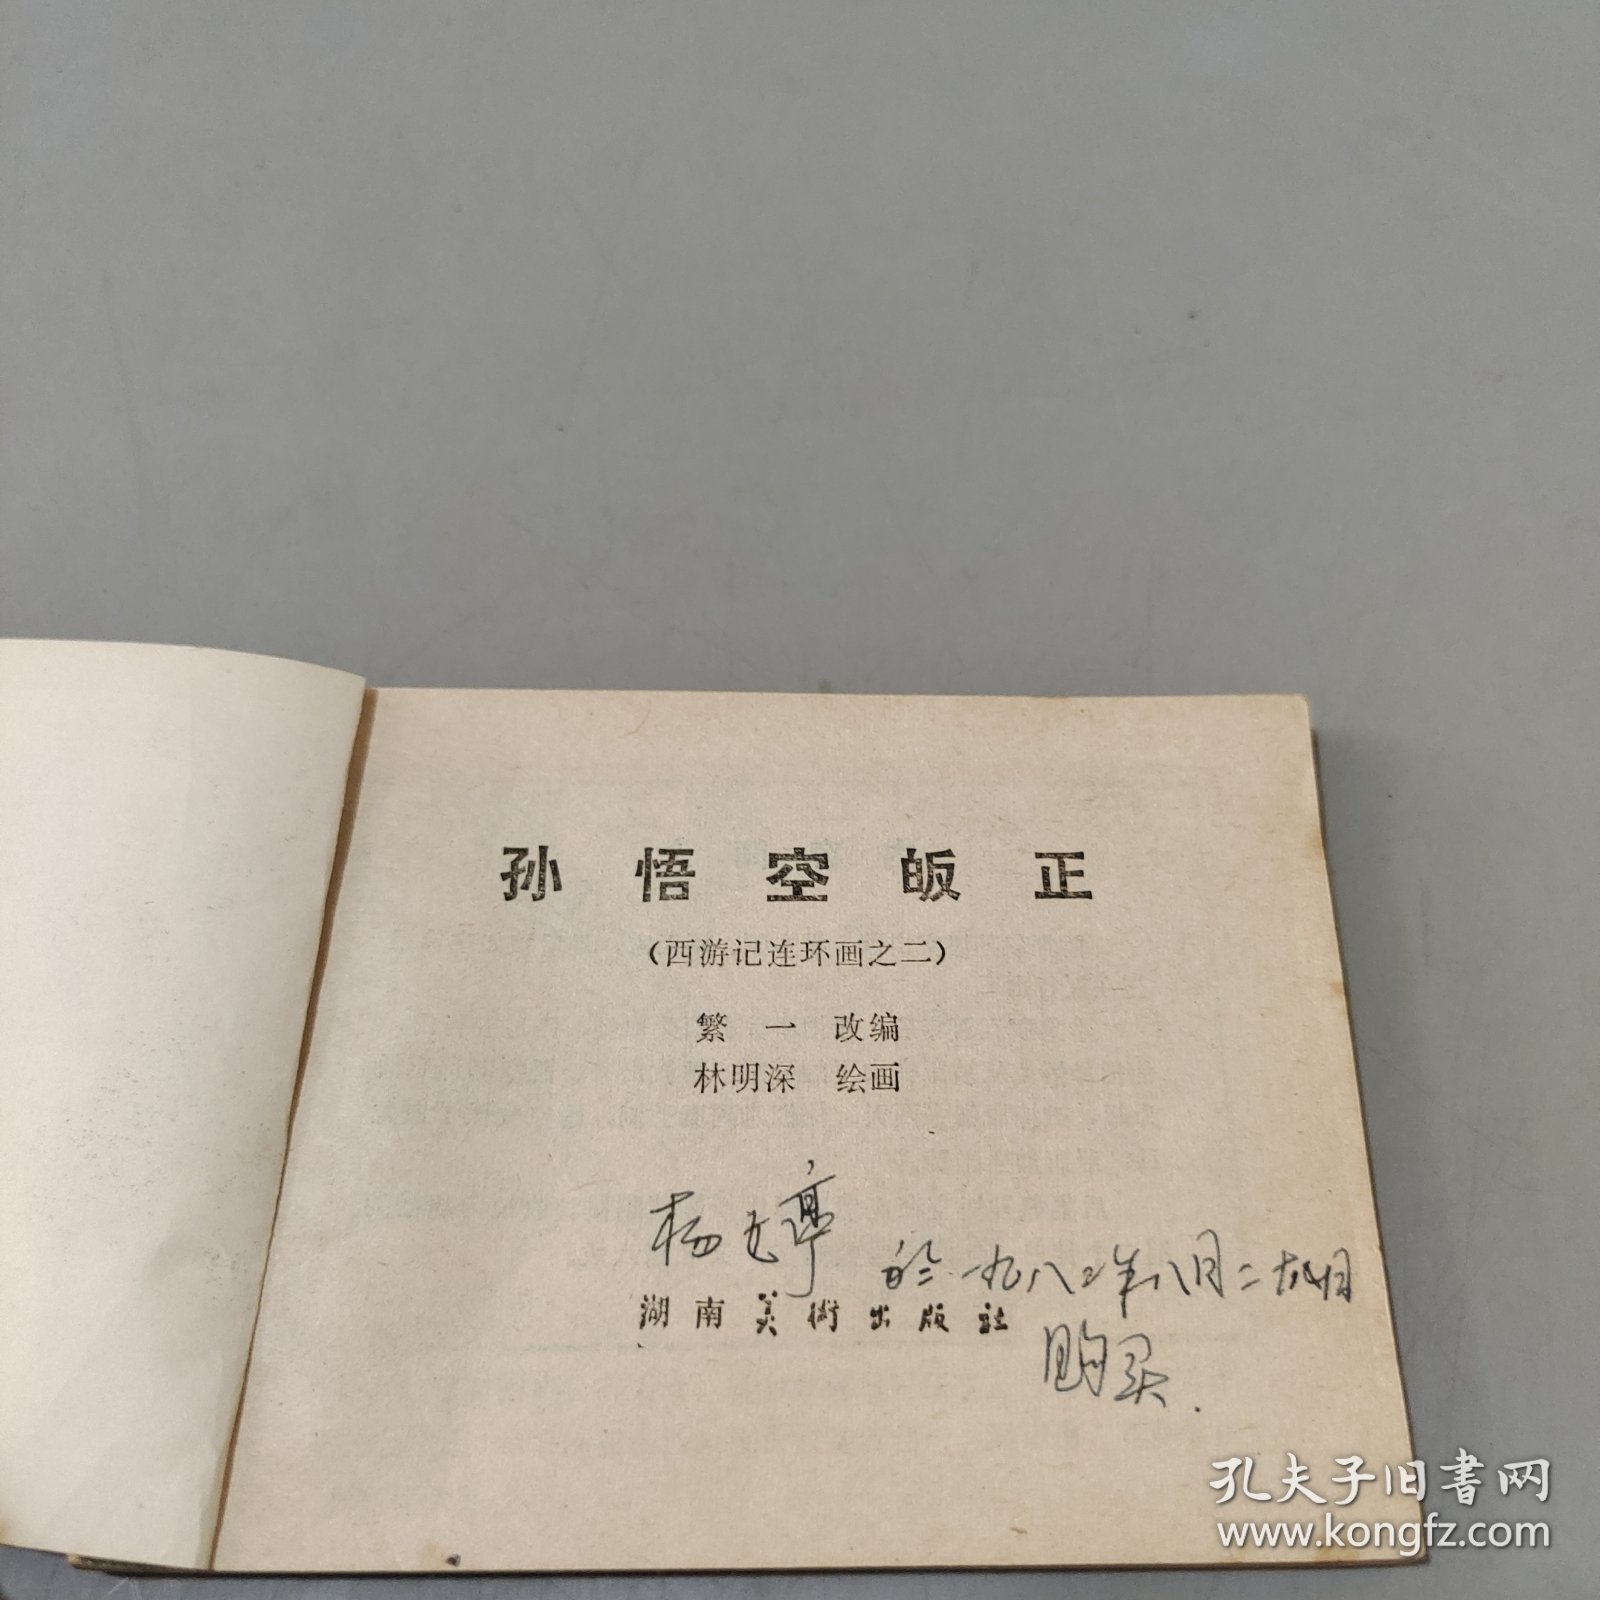 孙悟空皈正
(西游记连环画之二)
繁一 改编
林明深 绘画
杨 亭
于一九八二年八月二十 日
湖南美術出版社
购买.
孔夫子旧书网
www.kongfz.com